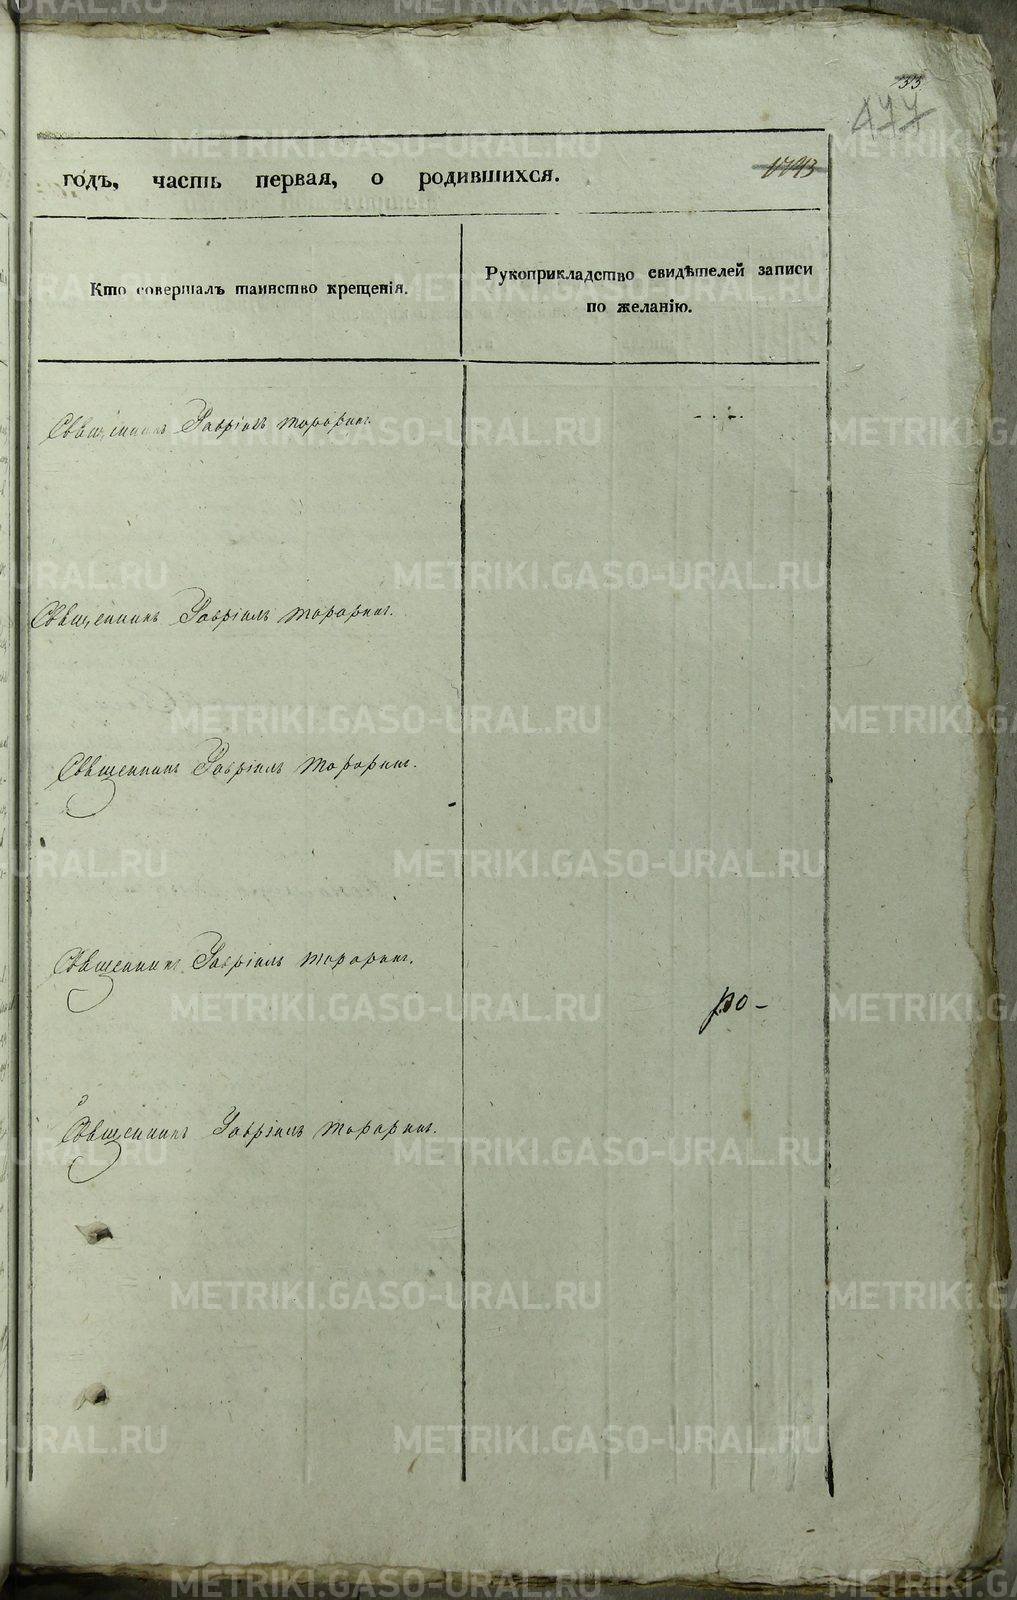 33
477
1793
годъ, часть первая, о родившихся.
Кто совершалъ таинство крещенія.
Рукоприкладство свидѣтелей записи
по желанію.
Священникъ Гавріилъ
Священникъ Гавріилъ
Священникъ Гавріилъ
Священникъ Гавріилъ
ро-
Священникъ Гавріилъ
METRIKI.GASO-URAL.RU